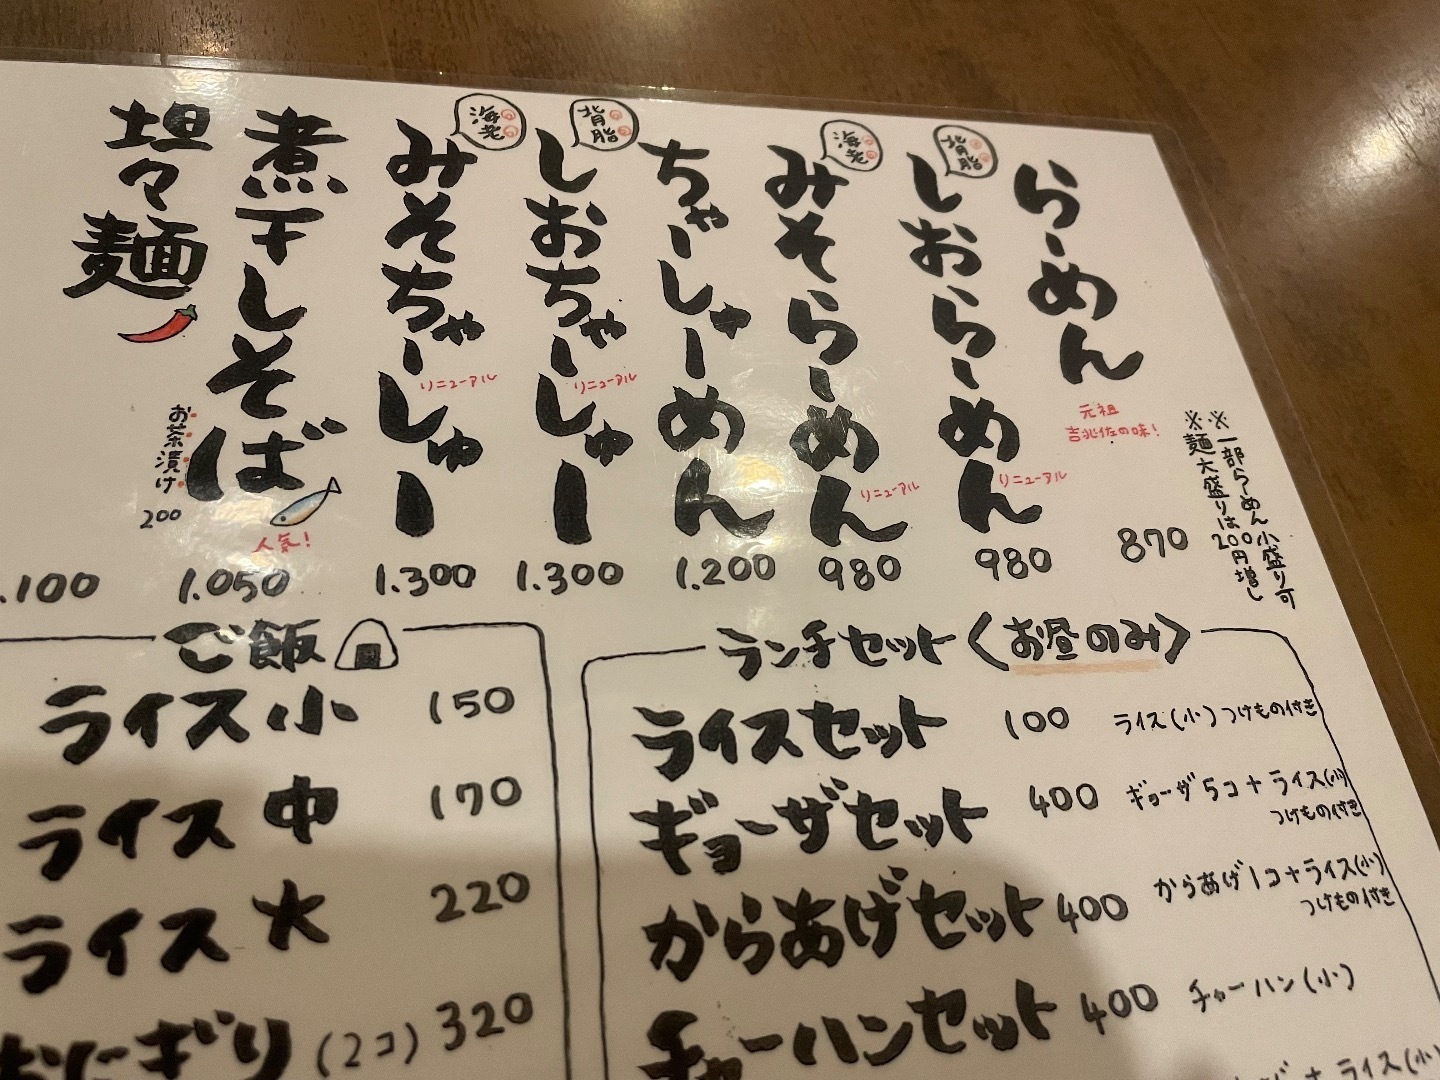 らーめん
元祖
吉兆佐の味!
870
※一部らーめん小盛り可
※麺大盛りは200円増し
背脂
しおらーめん
リニューアル
980
海老
みそらーめん
リニューアル
980
ちゃーしゅーめん
1.200
背脂
しおちゃーしゅー
リニューアル
1.300
海老
みそちゃーしゅー
リニューアル
1.300
煮干しそば
人気!
1.050
お茶漬け
200
坦々麺
.100
ご飯
ライス小 150
ライス中 170
ライス大 220
おにぎり(2コ) 320
ランチセット〈お昼のみ〉
ライスセット 100 ライス(小)つけもの付き
ギョーザセット 400 ギョーザ5コ+ライス(小)
つけもの付き
からあげセット 400 からあげ1コ+ライス(小)
つけもの付き
チャーハンセット 400 チャーハン(小)
+ライス(小)